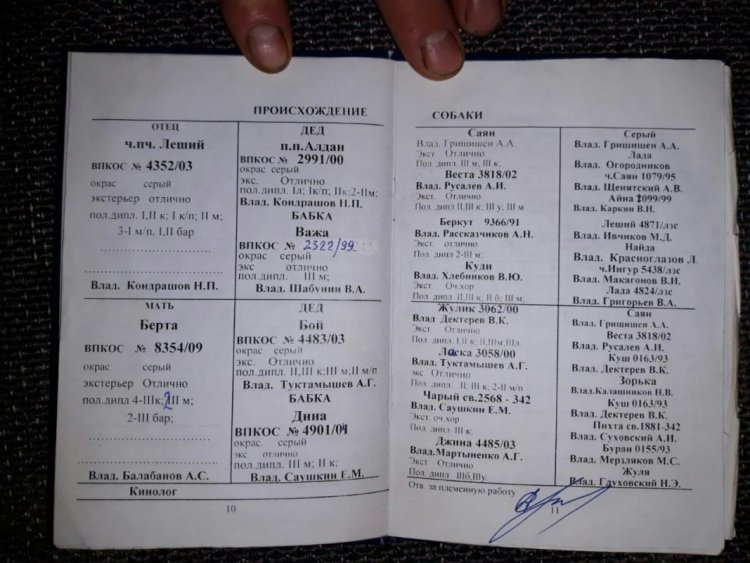 ПРОИСХОЖДЕНИЕ
ОТЕЦ
ч.пч. Леший
ВПКОС № 4352/03
окрас серый
экстерьер отлично
пол.дипл. I,II к; I к/п; II м;
3-I м/п. I,II бар
Влад. Кондрашов Н.П.
ДЕД
п.п.Алдан
ВПКОС № 2991/00
окрас серый
экс. Отлично
пол.дипл. Iл; Iк/п; IIк;2-IIм;
Влад. Кондрашов Н.П.
БАБКА
Важа
ВПКОС № 2322/99
окрас серый
экс. отлично
пол.дипл. III м;
Влад. Шабунин В.А.
МАТЬ
Берта
ВПКОС № 8354/09
окрас серый
экстерьер Отлично
пол.дипл 4-IIIк;2III м;
2-III бар;
Влад. Балабанов А.С.
ДЕД
Бой
ВПКОС № 4483/03
окрас серый
экс. Отлично
пол.дипл. II,III к;III м;II м/п
Влад. Туктамышев А.Г.
БАБКА
Дина
ВПКОС № 4901/04
окрас. серый
экс. отлично
пол.дипл. III м; II к;
Влад. Саушкин Е.М.
Кинолог
10
СОБАКИ
Саян
Влад. Грищишен А.А.
Экст. Отлично
Пол. дипл. III м; III к;
Веста 3818/02
Влад. Русалев А.И.
Экст Отлично
Пол. дипл II,III к; III у; III м
Беркут 9366/91
Влад. Рассказчиков А.Н.
Экст. отлично
Пол дипл 2-III м:
Куди
Влад. Хлебников В.Ю.
Экст. Оч.хор
Пол. дипл II,III к; II б; III м;
Жулик 3062/00
Влад Дектерев В.К.
Экст. Отлично
Ласка 3058/00
Влад.Туктамышев А.Г.
экс Отлично
Пол. дипл II, III к; 2-II м/п
Чарый св.2568 - 342
Влад. Саушкин Е.М.
Экст оч.хор
Пол. дипл-III к:
Джина 4485/03
Влад.Мартыненко А.Г.
Экст. Отлично
Пол.дипл. IIIб,IIIу
Серый
Влад. Грищишен А.А.
Лада
Влад. Огородников
ч.Саян 1079/95
Влад. Щенятский А.В.
Айна 2099/99
Влад. Каркин В.И.
Леший 4871/лзс
Влад. Ивчиков М.Д.
Найда
Влад. Красноглазов Л.
ч.Ингур 5438/лзс
Влад. Макагонов В.И.
Лада 4824/лзс
Влад. Григорьев В.А.
Саян
Влад. Грищишен А.А.
Веста 3818/02
Влад. Русалев А.И.
Куш 0163/93
Влад. Дектерев В.К.
Зорька
Влад.Калашников Н.В.
Куш 0163/93
Влад. Дектерев В.К.
Пихта св.1881-342
Влад. Суховский А.И.
Буран 0155/93
Влад. Мерзляков М.С.
Жуля
Влад. Гдуховский Н.Э.
Отв. за племенную работу
11